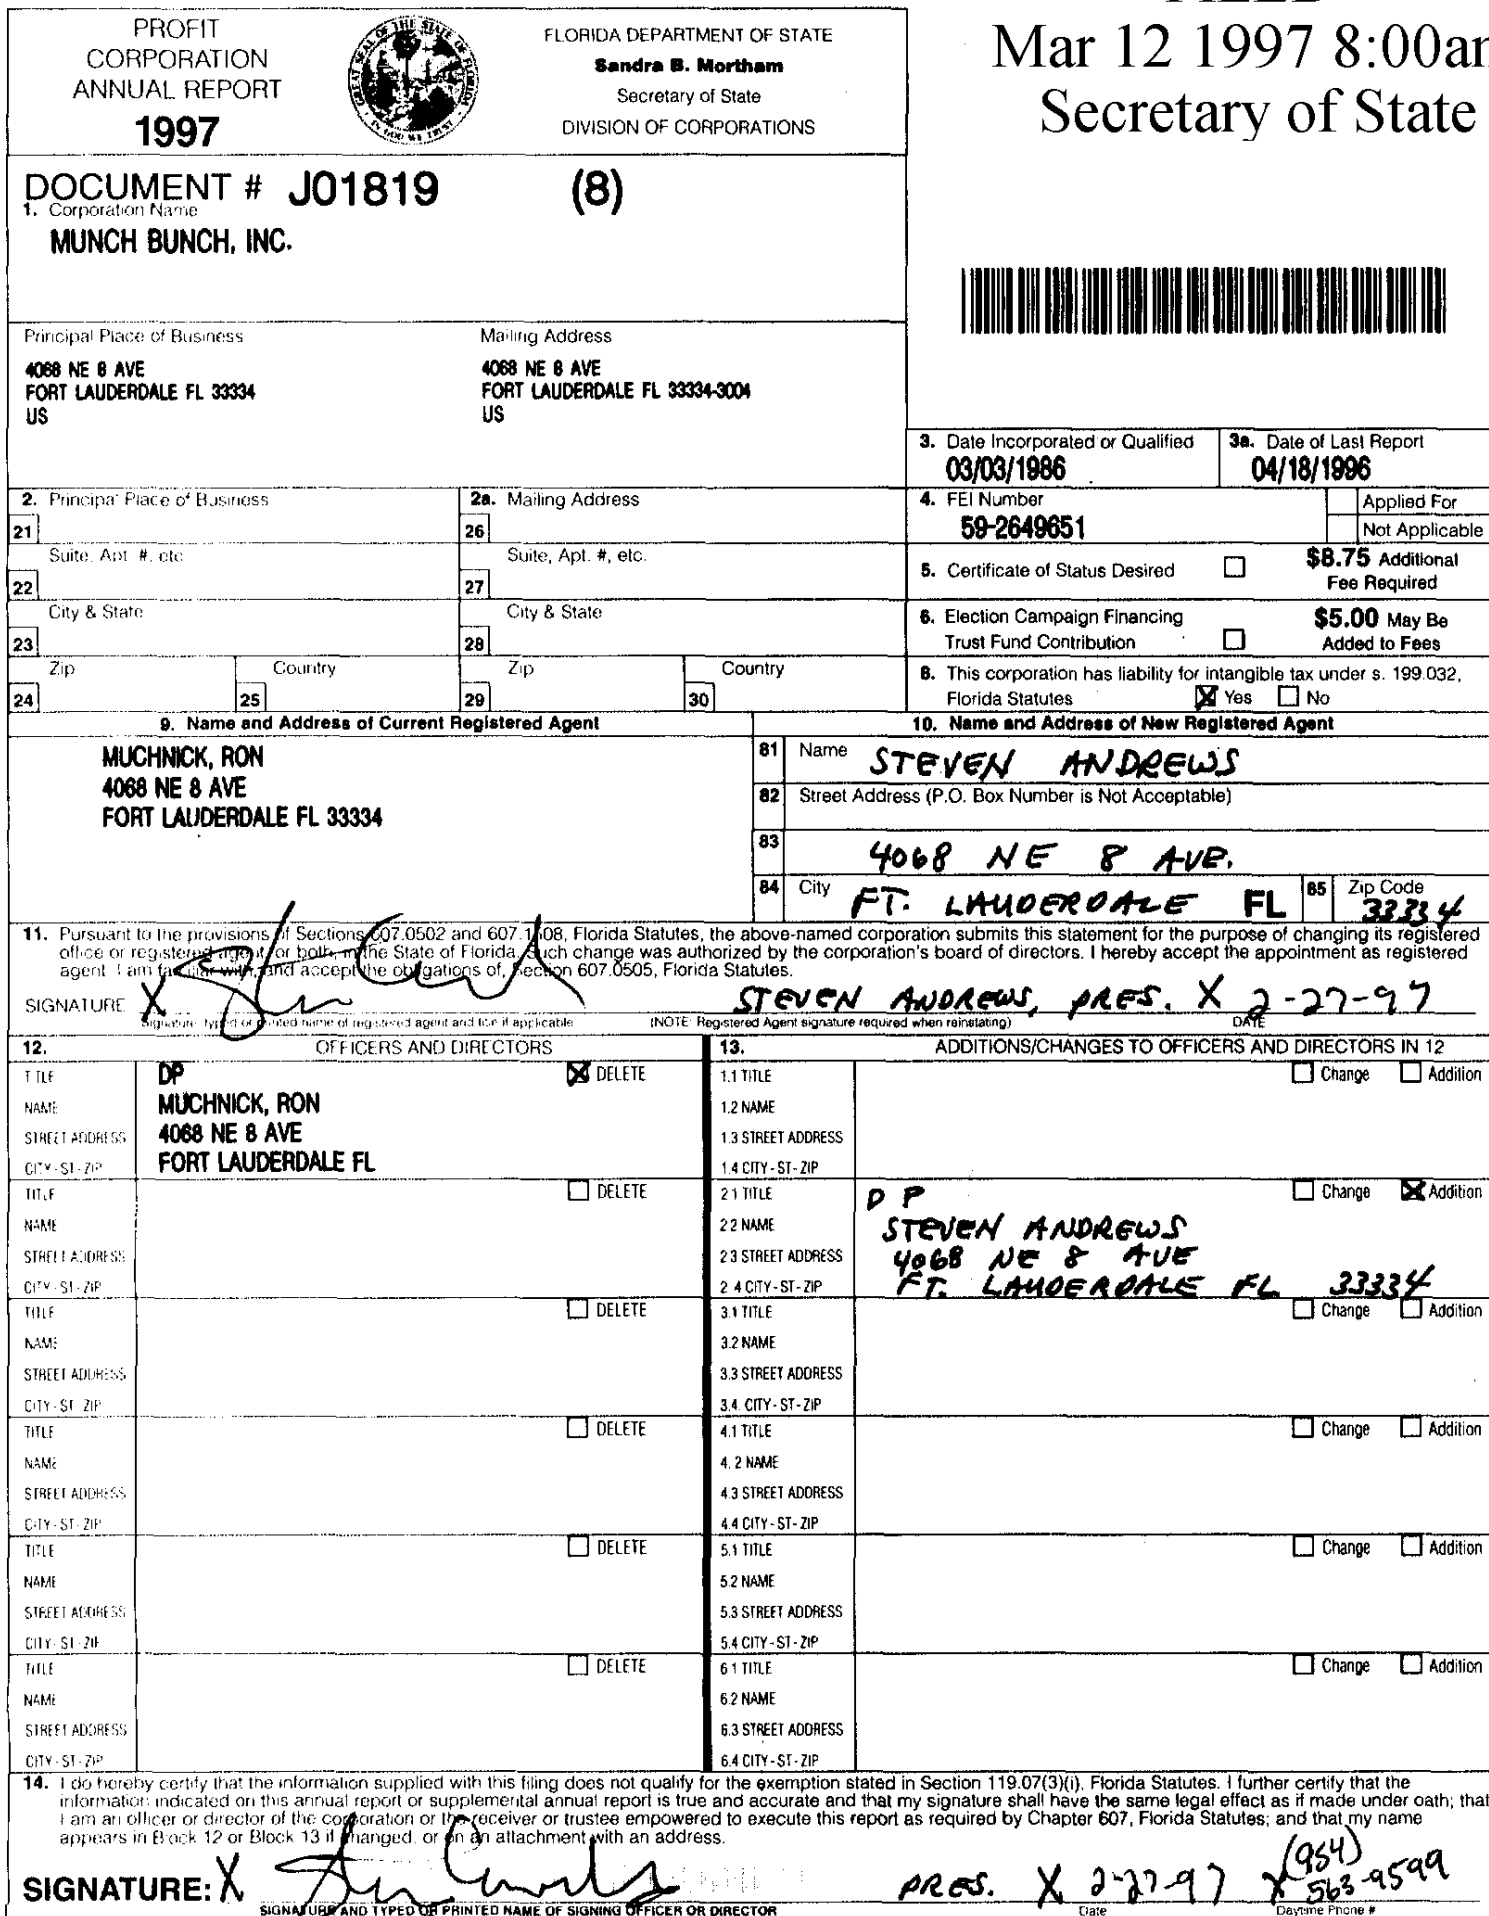 PROFIT
CORPORATION
ANNUAL REPORT
1997
FLORIDA DEPARTMENT OF STATE
Sandra B. Mortham
Secretary of State
DIVISION OF CORPORATIONS
Mar 12 1997 8:00am
Secretary of State
DOCUMENT # J01819 (8)
1. Corporation Name
MUNCH BUNCH, INC.
Principal Place of Business
4068 NE 8 AVE
FORT LAUDERDALE FL 33334
US
Mailing Address
4068 NE 8 AVE
FORT LAUDERDALE FL 33334-3004
US
3. Date Incorporated or Qualified
03/03/1986
3a. Date of Last Report
04/18/1996
2. Principal Place of Business
21
2a. Mailing Address
26
4. FEI Number
59-2649651
Applied For
Not Applicable
Suite, Apt. #, etc.
22
Suite, Apt. #, etc.
27
5. Certificate of Status Desired
$8.75 Additional
Fee Required
City & State
23
City & State
28
6. Election Campaign Financing
Trust Fund Contribution
$5.00 May Be
Added to Fees
Zip
24
Country
25
Zip
29
Country
30
8. This corporation has liability for intangible tax under s. 199.032,
Florida Statutes X Yes No
9. Name and Address of Current Registered Agent
MUCHNICK, RON
4068 NE 8 AVE
FORT LAUDERDALE FL 33334
10. Name and Address of New Registered Agent
81 Name STEVEN ANDREWS
82 Street Address (P.O. Box Number is Not Acceptable)
83 4068 NE 8 AVE.
84 City FT. LAUDERDALE FL 85 Zip Code 33334
11. Pursuant to the provisions of Sections 607.0502 and 607.1508, Florida Statutes, the above-named corporation submits this statement for the purpose of changing its registered
office or registered agent, or both, in the State of Florida. Such change was authorized by the corporation's board of directors. I hereby accept the appointment as registered
agent. I am familiar with, and accept the obligations of, Section 607.0505, Florida Statutes.
SIGNATURE X STEVEN ANDREWS, PRES. X 2-27-97
Signature, typed or printed name of registered agent and title if applicable (NOTE: Registered Agent signature required when reinstating) DATE
12. OFFICERS AND DIRECTORS
13. ADDITIONS/CHANGES TO OFFICERS AND DIRECTORS IN 12
TITLE DP X DELETE
NAME MUCHNICK, RON
STREET ADDRESS 4068 NE 8 AVE
CITY-ST-ZIP FORT LAUDERDALE FL
1.1 TITLE Change Addition
1.2 NAME
1.3 STREET ADDRESS
1.4 CITY-ST-ZIP
TITLE DELETE
NAME
STREET ADDRESS
CITY-ST-ZIP
2.1 TITLE D P Change X Addition
2.2 NAME STEVEN ANDREWS
2.3 STREET ADDRESS 4068 NE 8 AVE
2.4 CITY-ST-ZIP FT. LAUDERDALE FL 33334
TITLE DELETE
NAME
STREET ADDRESS
CITY-ST-ZIP
3.1 TITLE Change Addition
3.2 NAME
3.3 STREET ADDRESS
3.4. CITY-ST-ZIP
TITLE DELETE
NAME
STREET ADDRESS
CITY-ST-ZIP
4.1 TITLE Change Addition
4.2 NAME
4.3 STREET ADDRESS
4.4 CITY-ST-ZIP
TITLE DELETE
NAME
STREET ADDRESS
CITY-ST-ZIP
5.1 TITLE Change Addition
5.2 NAME
5.3 STREET ADDRESS
5.4 CITY-ST-ZIP
TITLE DELETE
NAME
STREET ADDRESS
CITY-ST-ZIP
6.1 TITLE Change Addition
6.2 NAME
6.3 STREET ADDRESS
6.4 CITY-ST-ZIP
14. I do hereby certify that the information supplied with this filing does not qualify for the exemption stated in Section 119.07(3)(i), Florida Statutes. I further certify that the
information indicated on this annual report or supplemental annual report is true and accurate and that my signature shall have the same legal effect as if made under oath; that
I am an officer or director of the corporation or the receiver or trustee empowered to execute this report as required by Chapter 607, Florida Statutes; and that my name
appears in Block 12 or Block 13 if changed, or on an attachment with an address.
SIGNATURE: X PRES. X 2-27-97 X (954) 563-9599
SIGNATURE AND TYPED OR PRINTED NAME OF SIGNING OFFICER OR DIRECTOR Date Daytime Phone #